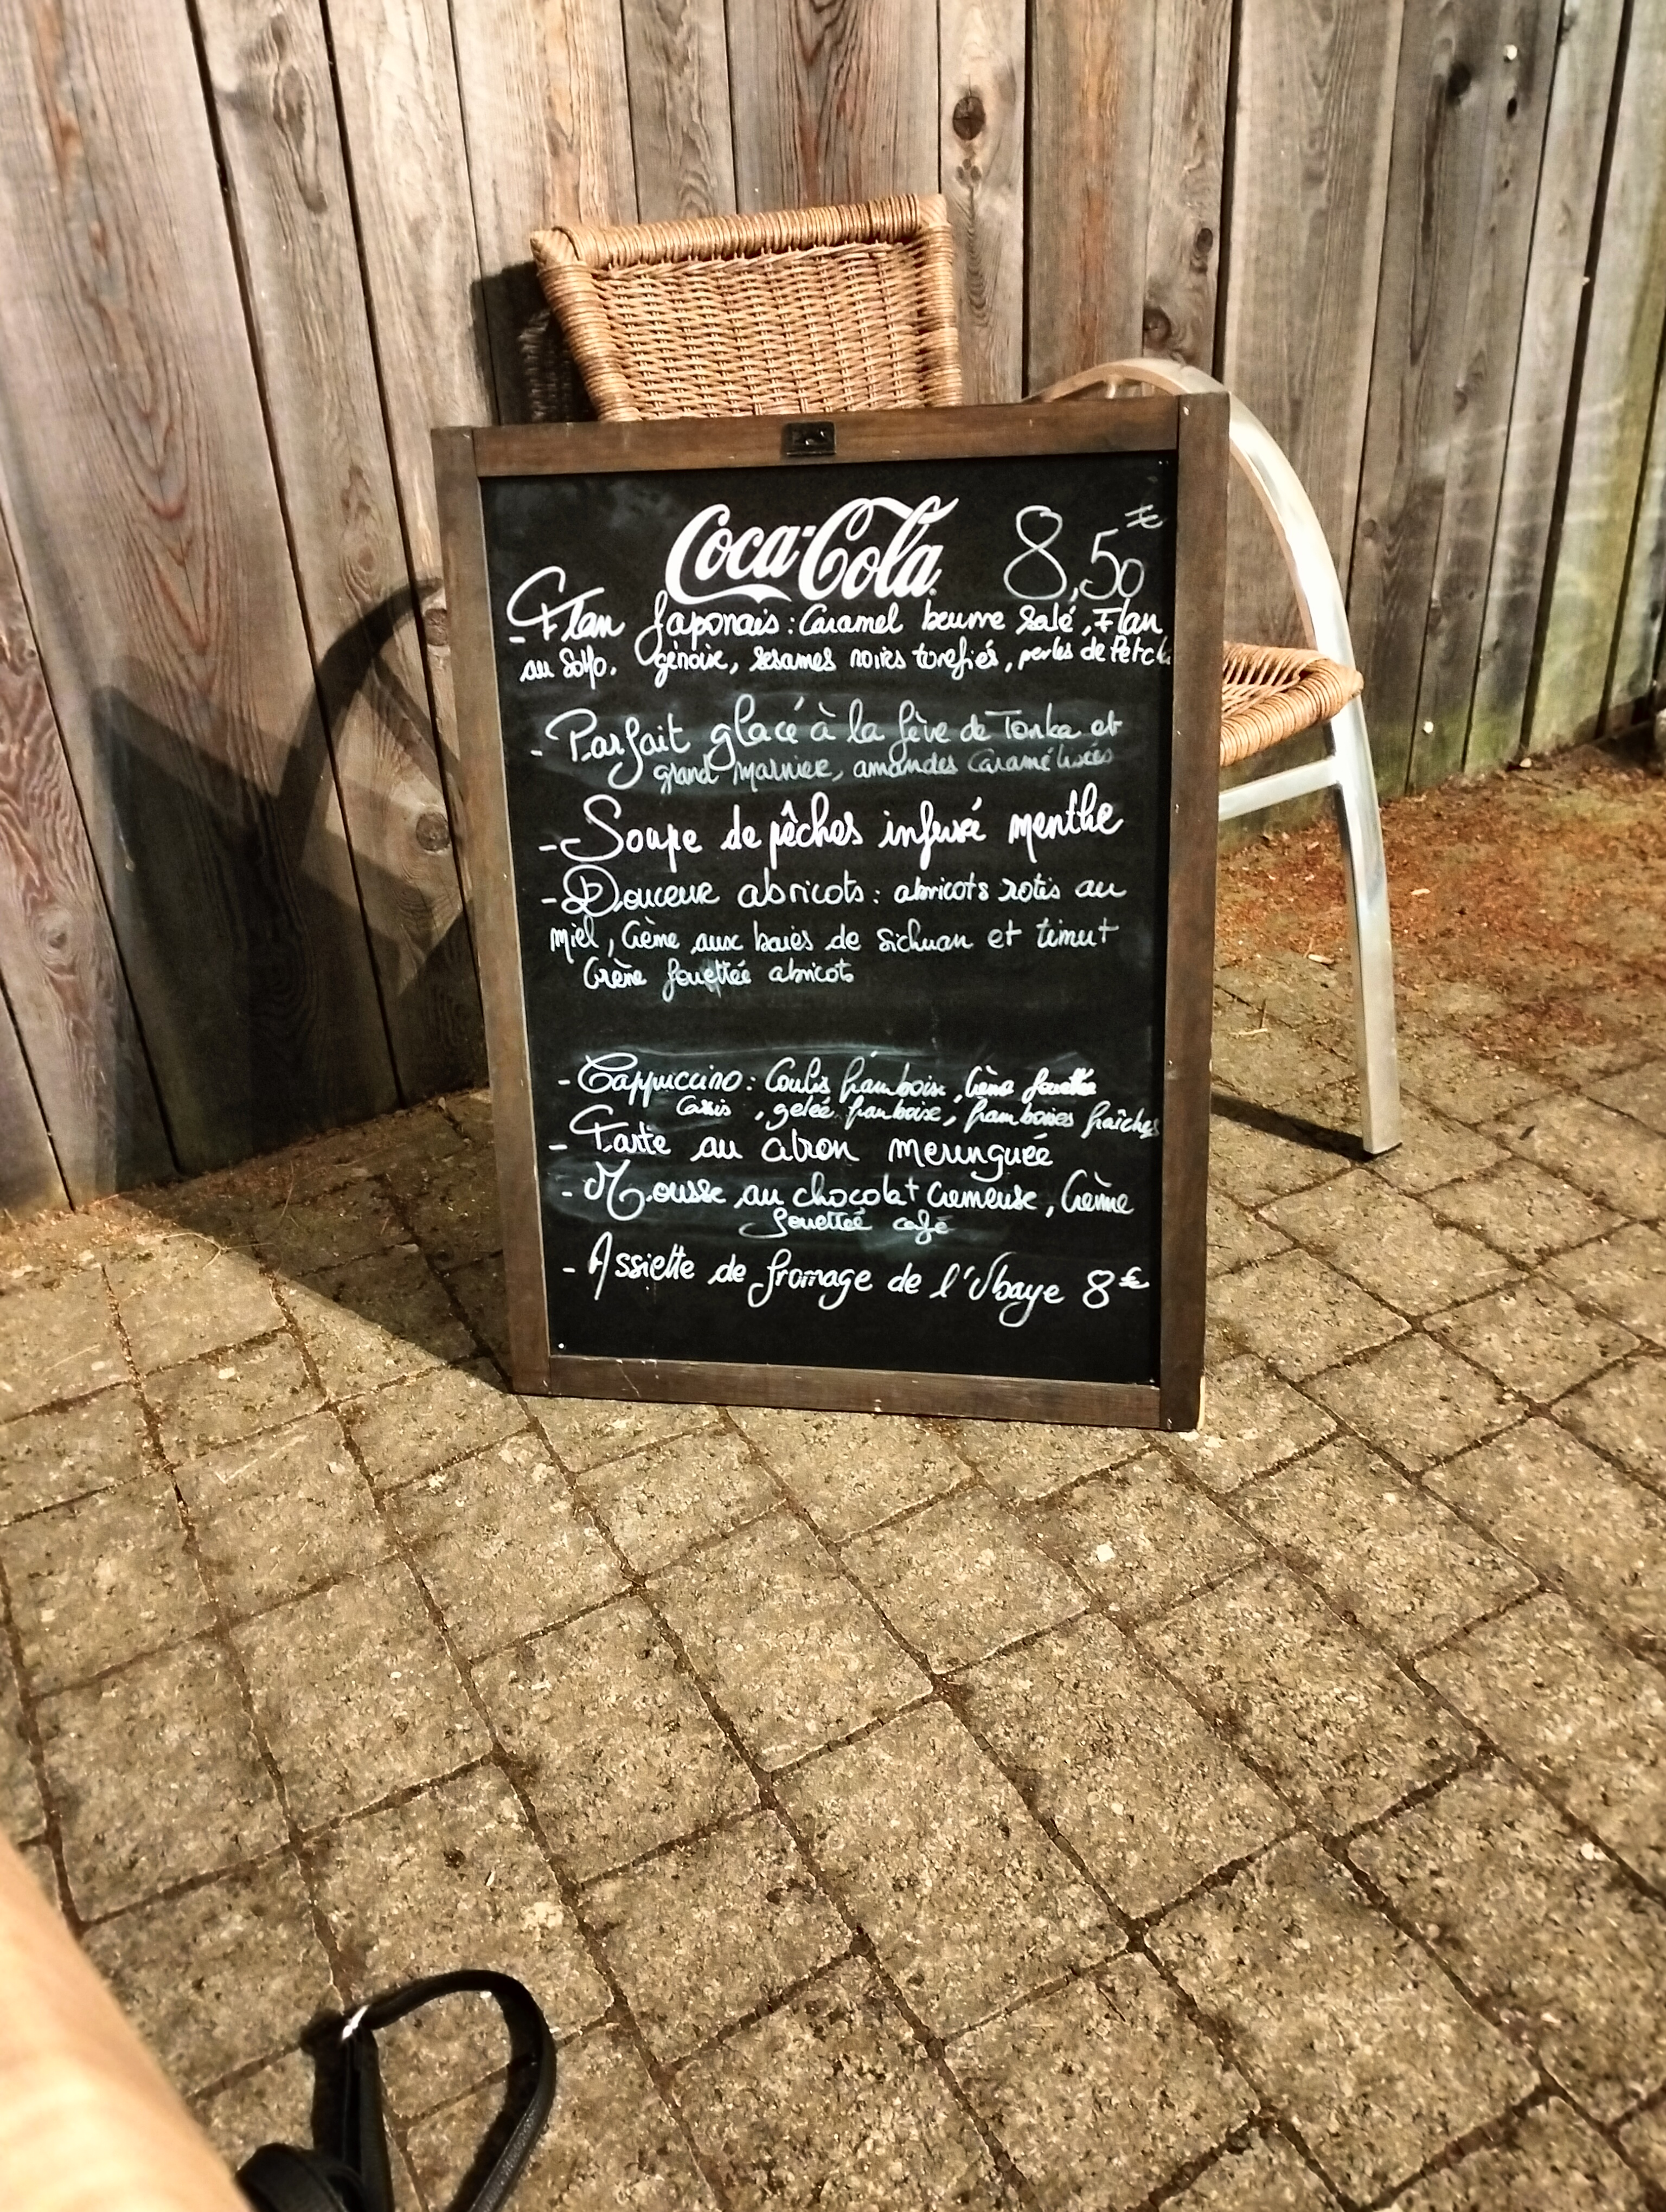 Coca-Cola 8,50€
- Flan Japonais : Caramel beurre salé, Flan
au génoise, sesames noires torefiés, perles de
- Parfait glacé à la fève de Tonka et
grand marnier, amandes caramélisées
- Soupe de pêches infusé menthe
- Douceur abricots : abricots rotis au
miel, Crème aux baies de sichuan et timut
Crème fouettée abricots
- Cappuccino : Coulis framboise, Crème fouettée
Cassis, gelée framboise, framboises fraîches
- Tarte au citron meringuée
- Mousse au chocolat Cremeuse, Crème
fouettée café
- Assiette de fromage de l'Ubaye 8€